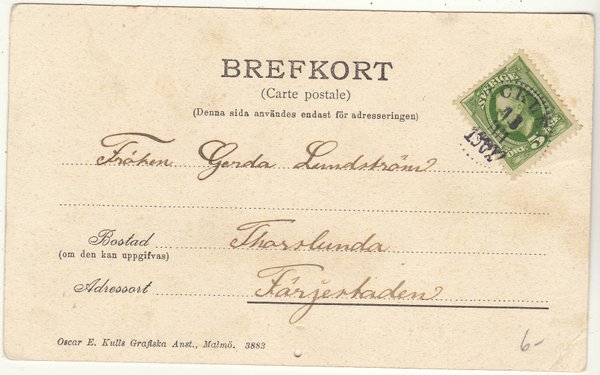 BREFKORT
(Carte postale)
(Denna sida användes endast för adresseringen)
SVERIGE
5
ÖRE
Fröken Gerda Lundström
Bostad Thorslunda
(om den kan uppgifvas)
Adressort Färjestaden
Oscar E. Kulls Grafiska Anst., Malmö. 3883
6-